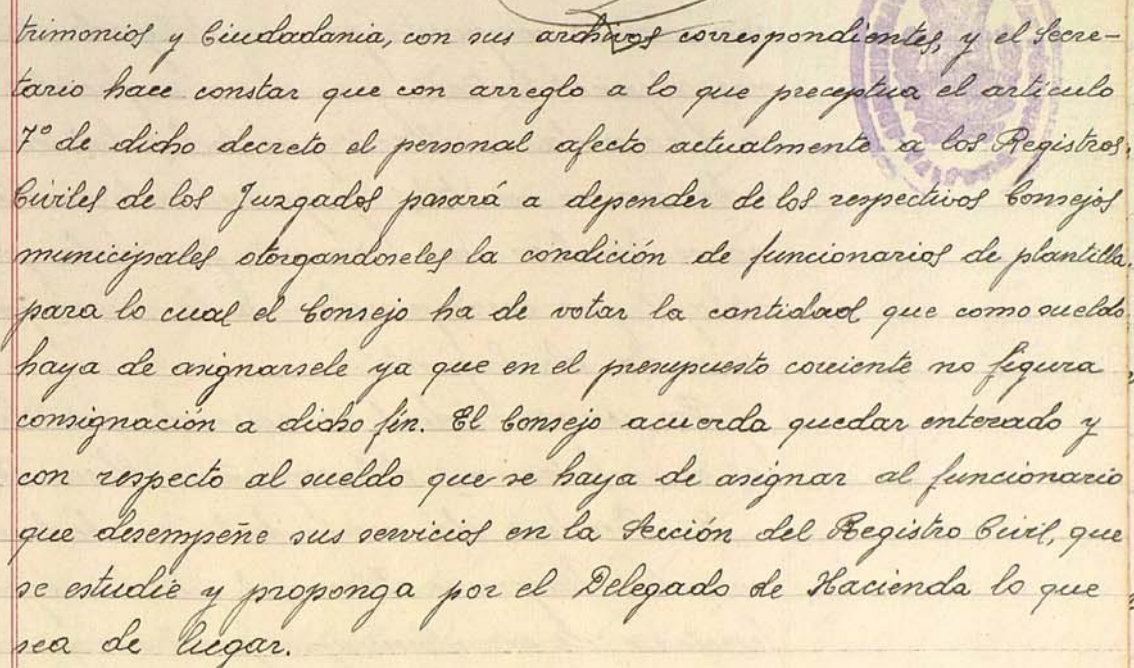 trimonios y Ciudadania, con sus archivos correspondientes, y el Secre-
tario hace constar que con arreglo a lo que preceptua el articulo
7º de dicho decreto el personal afecto actualmente a los Registros
Civiles de los Juzgados pasará a depender de los respectivos Consejos
municipales otorgandoseles la condición de funcionarios de plantilla,
para lo cual el Consejo ha de votar la cantidad que como sueldo
haya de asignarsele ya que en el presupuesto corriente no figura
consignación a dicho fin. El Consejo acuerda quedar enterado y
con respecto al sueldo que se haya de asignar al funcionario
que desempeñe sus servicios en la Sección del Registro Civil, que
se estudie y proponga por el Delegado de Hacienda lo que
sea de lugar.